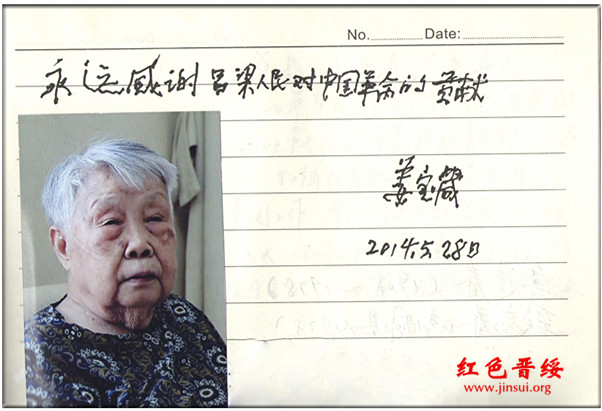 No. Date:
永远感谢吕梁人民对中国革命的贡献
姜宝箴
2014.5.28日
红色晋绥
www.jinsui.org